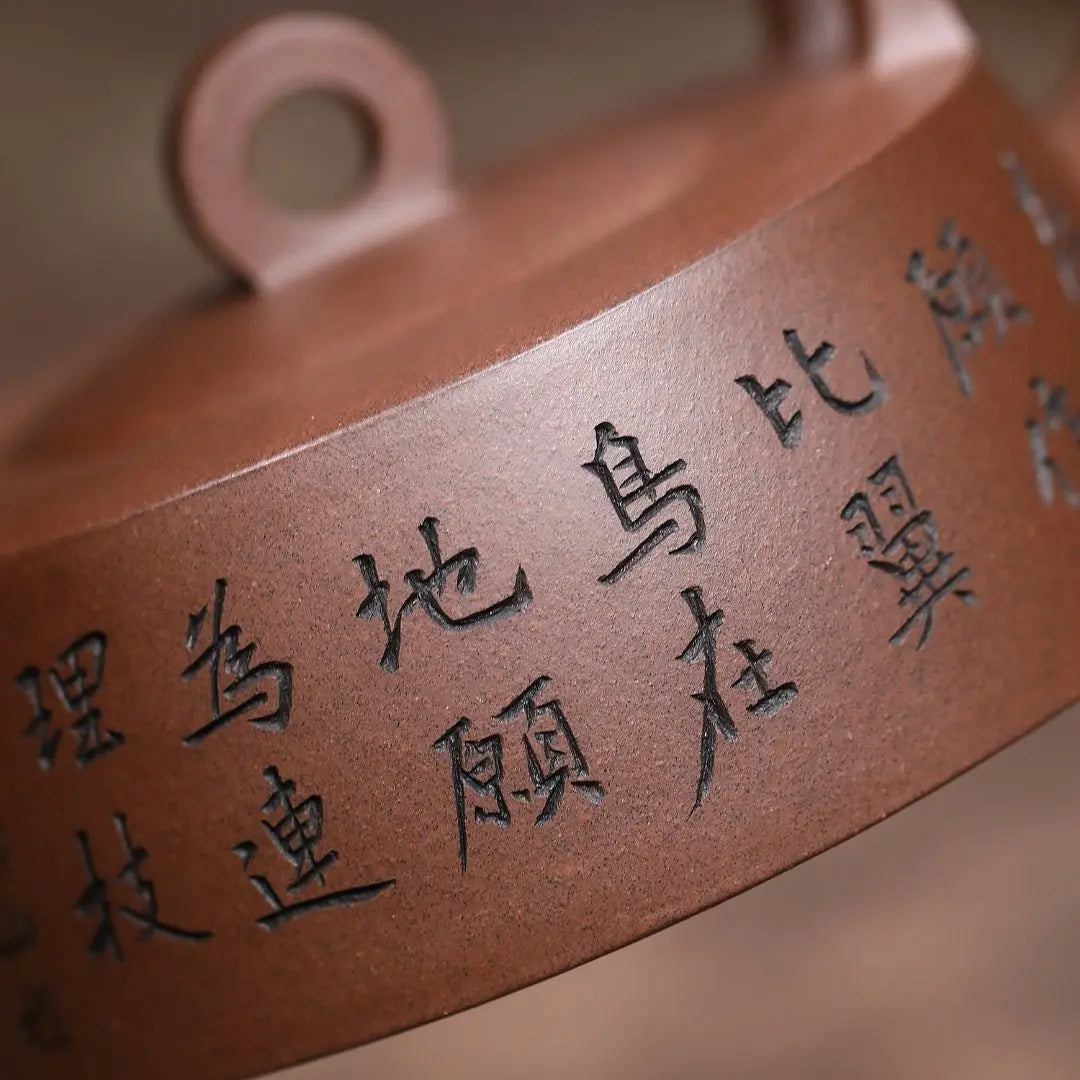 願
比翼
鳥在
地願
為連
理枝